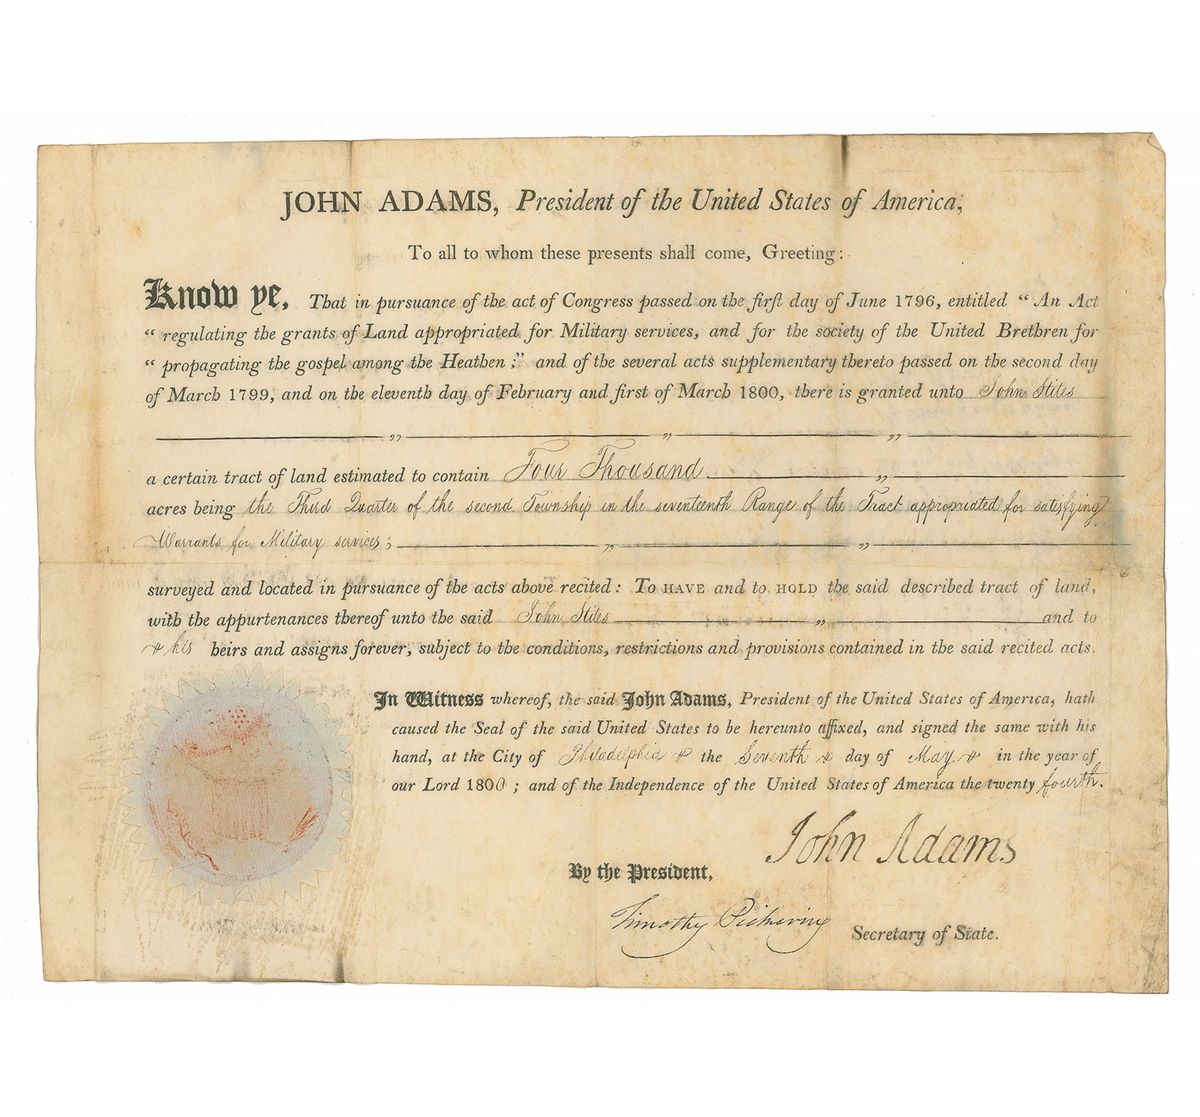 JOHN ADAMS, President of the United States of America,
To all to whom these presents shall come, Greeting:
Know ye, That in pursuance of the act of Congress passed on the first day of June 1796, entitled “An Act
“ regulating the grants of Land appropriated for Military services, and for the society of the United Brethren for
“ propagating the gospel among the Heathen;” and of the several acts supplementary thereto passed on the second day
of March 1799, and on the eleventh day of February and first of March 1800, there is granted unto John Stiles
a certain tract of land estimated to contain Four Thousand
acres being the Third Quarter of the second Township in the seventeenth Range of the Tract appropriated for satisfying
Warrants for Military services;
surveyed and located in pursuance of the acts above recited: To HAVE and to HOLD the said described tract of land,
with the appurtenances thereof unto the said John Stiles and to
his heirs and assigns forever, subject to the conditions, restrictions and provisions contained in the said recited acts.
In Witness whereof, the said John Adams, President of the United States of America, hath
caused the Seal of the said United States to be hereunto affixed, and signed the same with his
hand, at the City of Philadelphia the Seventh day of May in the year of
our Lord 1800; and of the Independence of the United States of America the twenty fourth.
John Adams
By the President,
Timothy Pickering Secretary of State.